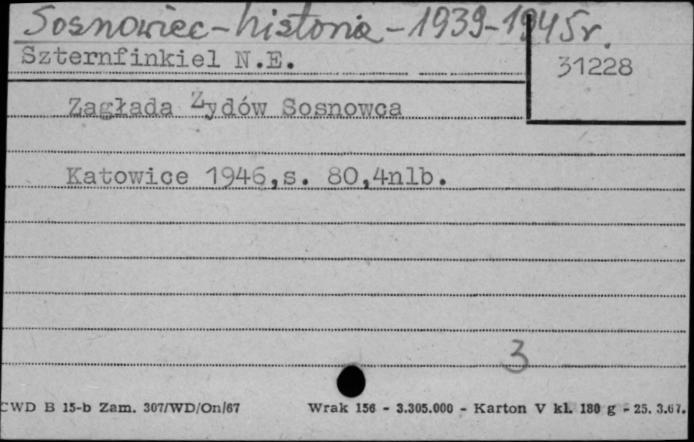 Sosnowiec-historia-1939-1945r.
Szternfinkiel N.E.
31228
Zagłada Żydów Sosnowca
Katowice 1946,s. 80,4nlb.
3
CWD B 15-b Zam. 307/WD/On/67 Wrak 156 - 3.305.000 - Karton V kl. 180 g - 25. 3.67.